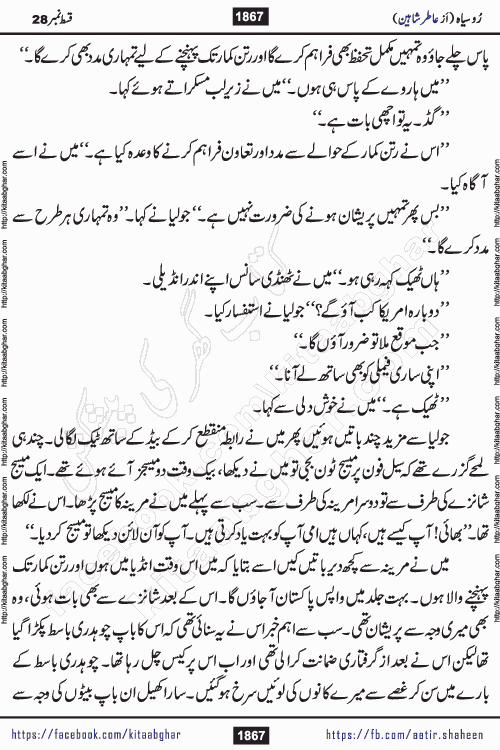 رُوسیاہ (اَز عاطر شاہین)
1867
قسط نمبر 28
پاس چلے جاؤ وہ تمہیں مکمل تحفظ بھی فراہم کرے گا اور رتن کمار تک پہنچنے کے لیے تمہاری مدد بھی کرے گا۔‘‘
’’میں ہاروے کے پاس ہی ہوں۔‘‘ میں نے زیر لب مسکراتے ہوئے کہا۔
’’گڈ۔ یہ تو اچھی بات ہے۔‘‘
’’اس نے رتن کمار کے حوالے سے مدد اور تعاون فراہم کرنے کا وعدہ کیا ہے۔‘‘ میں نے اسے
آگاہ کیا۔
’’بس پھر تمہیں پریشان ہونے کی ضرورت نہیں ہے۔‘‘ جولیا نے کہا۔ ’’وہ تمہاری ہر طرح سے
مدد کرے گا۔‘‘
’’ہاں ٹھیک کہہ رہی ہو۔‘‘ میں نے ٹھنڈی سانس اپنے اندر انڈیلی۔
’’دوبارہ امریکا کب آؤ گے؟‘‘ جولیا نے استفسار کیا۔
’’جب موقع ملا تو ضرور آؤں گا۔‘‘
’’اپنی ساری فیملی کو بھی ساتھ لے آنا۔‘‘
’’ٹھیک ہے۔‘‘ میں نے خوش دلی سے کہا۔
جولیا سے مزید چند باتیں ہوئیں پھر میں نے رابطہ منقطع کر کے بیڈ کے ساتھ ٹیک لگا لی۔ چند ہی
لمحے گزرے تھے کہ سیل فون پر میسج ٹون بجی تو میں نے دیکھا، بیک وقت دو میسجز آئے ہوئے تھے۔ ایک میسج
شانزے کی طرف سے تو دوسرا مرینہ کی طرف سے۔ سب سے پہلے میں نے مرینہ کا میسج پڑھا۔ اس نے لکھا
تھا۔ ’’بھائی! آپ کیسے ہیں، کہاں ہیں امی آپ کو بہت یاد کرتی ہیں۔ آپ کو آن لائن دیکھا تو میسج کر دیا۔‘‘
میں نے مرینہ سے کچھ دیر باتیں کیں اسے بتایا کہ میں اس وقت انڈیا میں ہوں اور رتن کمار تک
پہنچنے والا ہوں۔ بہت جلد میں واپس پاکستان آ جاؤں گا۔ اس کے بعد شانزے سے بھی بات ہوئی، وہ
بھی میری وجہ سے پریشان تھی۔ سب سے اہم خبر اس نے یہ سنائی تھی کہ اس کا باپ چوہدری باسط پکڑا گیا
تھا لیکن اس نے بعد از گرفتاری ضمانت کرا لی تھی اور اب اس پر کیس چل رہا تھا۔ چوہدری باسط کے
بارے میں سن کر غصے سے میرے کانوں کی لوئیں سرخ ہو گئیں۔ سارا کھیل ان باپ بیٹوں کی وجہ سے
https://facebook.com/kitaabghar
1867
https://fb.com/aatir.shaheen
http://kitaabghar.com
http://kitaabghar.com
http://kitaabghar.com
http://kitaabghar.com
http://kitaabghar.com
http://kitaabghar.com
http://kitaabghar.com
http://kitaabghar.com
http://kitaabghar.com
http://kitaabghar.com
http://kitaabghar.com
http://kitaabghar.com